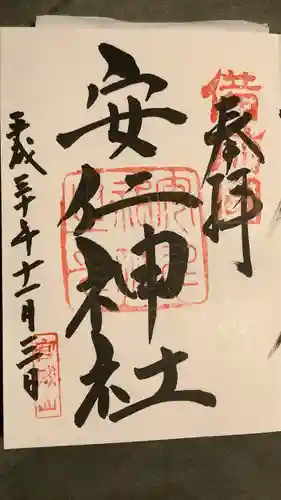 奉拝
備前國
安仁神社
平成三十年十一月三日
宮城山